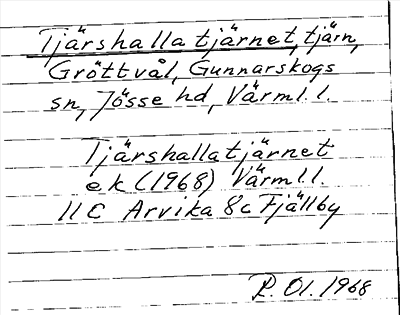 Tjärshallatjärnet, tjärn,
Gröttvål, Gunnarskogs
sn, Jösse hd, Värml. l.
Tjärshallatjärnet
ek (1968) Värml.l.
11C Arvika 8c Fjällby
P. Ol. 1968